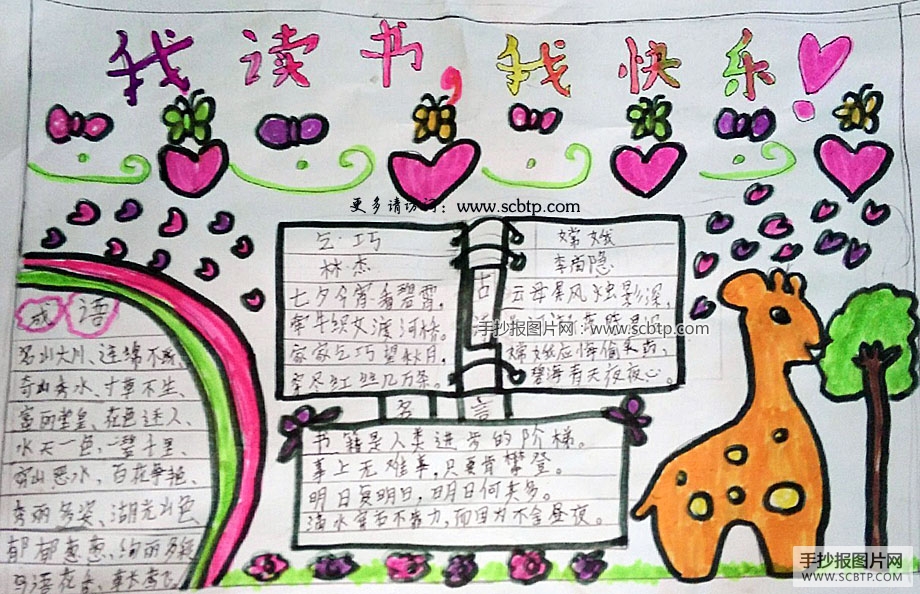 我读书，我快乐！
更多请访问：www.scbtp.com
成语
名山大川、连绵不断、
奇山秀水、寸草不生、
富丽堂皇、花色迷人、
水天一色、一碧千里、
穷山恶水、百花争艳、
秀丽多姿、湖光山色、
郁郁葱葱、绚丽多姿
鸟语花香、草长莺飞
乞巧
林杰
七夕今宵看碧霄，
牵牛织女渡河桥。
家家乞巧望秋月，
穿尽红丝几万条。
古
嫦娥
李商隐
云母屏风烛影深，
手抄报图片网：www.scbtp.com
嫦娥应悔偷灵药，
碧海青天夜夜心。
名言
书籍是人类进步的阶梯。
事上无难事，只要肯攀登。
明日复明日，明日何其多。
滴水穿石不是力，而因为不舍昼夜。
手抄报图片网
WWW.SCBTP.COM